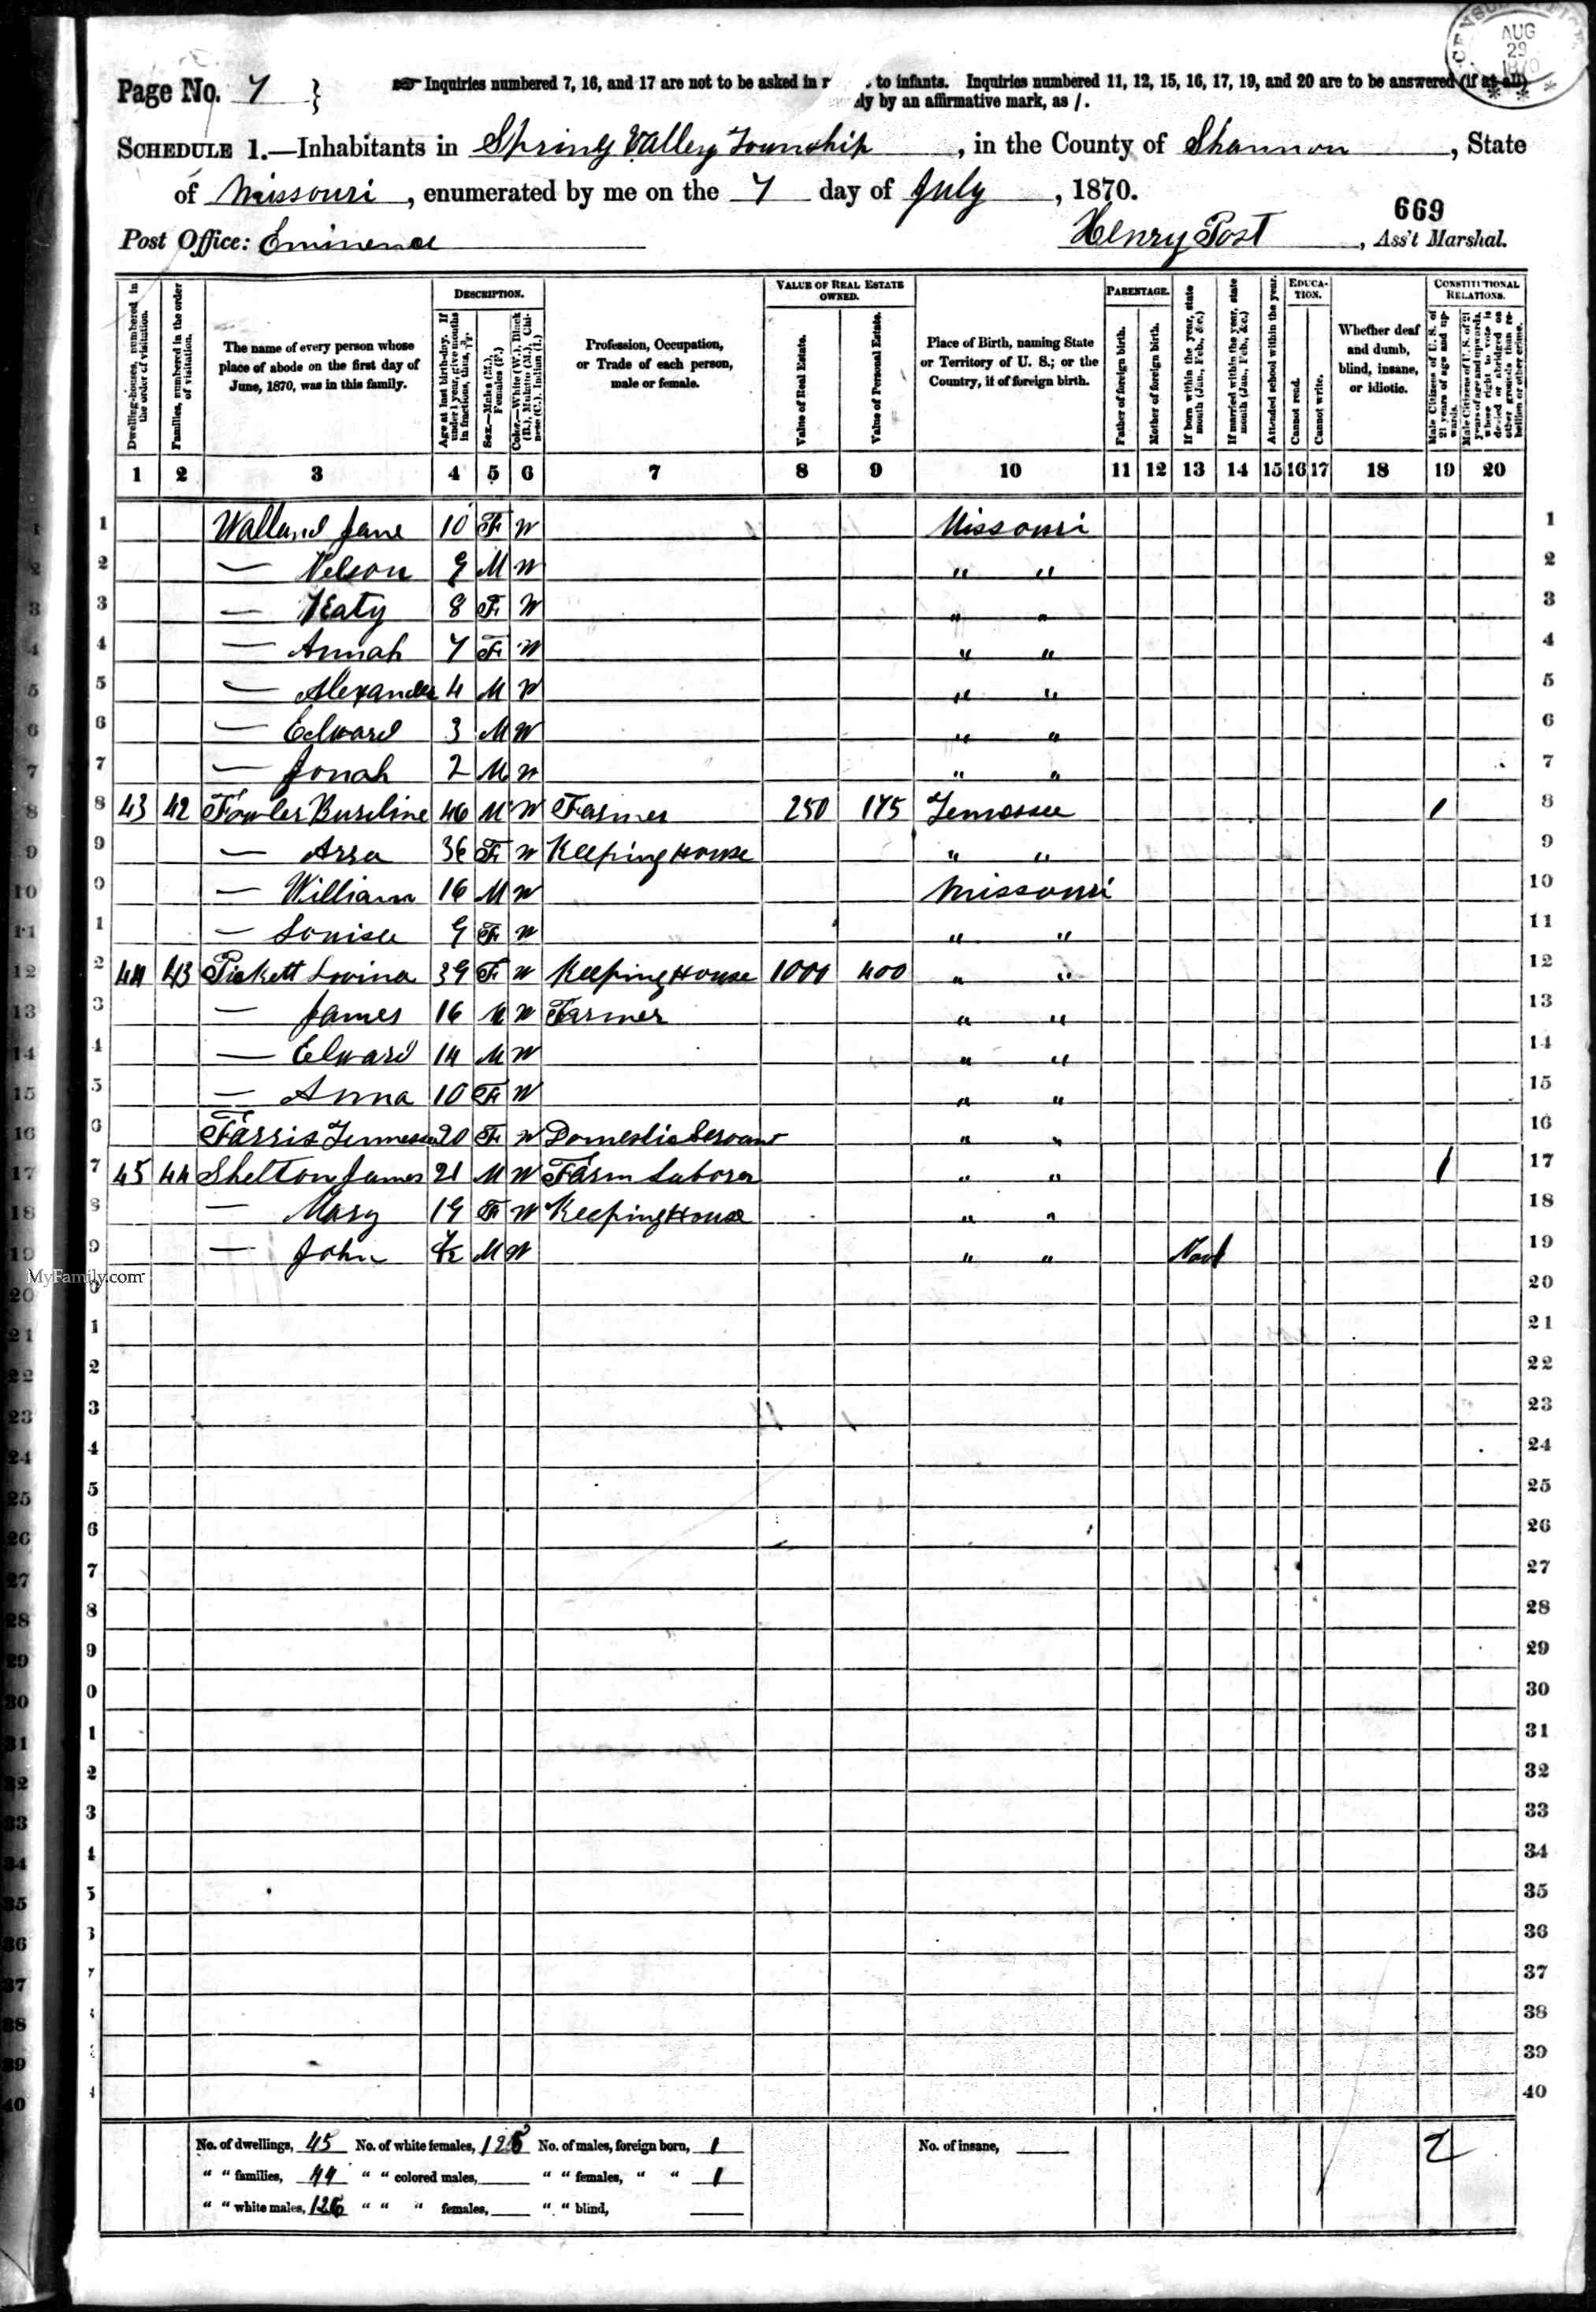 CENSUS OFFICE AUG 29 1870
Page No. 7 } Inquiries numbered 7, 16, and 17 are not to be asked in r to infants. Inquiries numbered 11, 12, 15, 16, 17, 19, and 20 are to be answered (if at all)
ly by an affirmative mark, as /.
SCHEDULE 1.—Inhabitants in Spring Valley Township, in the County of Shannon, State
of Missouri, enumerated by me on the 7 day of July, 1870.
669
Post Office: Eminence Henry Post, Ass't Marshal.
Dwelling-houses, numbered in the order of visitation.
Families, numbered in the order of visitation.
The name of every person whose place of abode on the first day of June, 1870, was in this family.
DESCRIPTION.
Age at last birth-day. If under 1 year, give months in fractions, thus, 3/12.
Sex.—Males (M.), Females (F.)
Color.—White (W.), Black (B.), Mulatto (M.), Chinese (C.), Indian (I.)
Profession, Occupation, or Trade of each person, male or female.
VALUE OF REAL ESTATE OWNED.
Value of Real Estate.
Value of Personal Estate.
Place of Birth, naming State or Territory of U. S.; or the Country, if of foreign birth.
PARENTAGE.
Father of foreign birth.
Mother of foreign birth.
If born within the year, state month (Jan., Feb., &c.)
If married within the year, state month (Jan., Feb., &c.)
Attended school within the year.
EDUCATION.
Cannot read.
Cannot write.
Whether deaf and dumb, blind, insane, or idiotic.
CONSTITUTIONAL RELATIONS.
Male Citizens of U. S. of 21 years of age and upwards.
Male Citizens of U. S. of 21 years of age and upwards, whose right to vote is denied or abridged on other grounds than rebellion or other crime.
1 2 3 4 5 6 7 8 9 10 11 12 13 14 15 16 17 18 19 20
1 Jane 10 F W Missouri 1
2 — Nelson 9 M W " " 2
3 — Katy 8 F W " " 3
4 — Annah 7 F W " " 4
5 — Alexander 4 M W " " 5
6 — Edward 3 M W " " 6
7 — Jonah 2 M W " " 7
8 43 42 Fowler 46 M W Farmer 250 175 Tennessee 1 8
9 — 36 F W Keeping House " " 9
10 — William 16 M W Missouri 10
11 — Louisa 9 F W " " 11
12 44 43 Pickett Lovina 39 F W Keeping House 1000 400 " " 12
13 — James 16 M W Farmer " " 13
14 — Edward 14 M W " " 14
15 — Anna 10 F W " " 15
16 Farris Tennessee 20 F W Domestic Servant " " 16
17 45 44 Shelton James 21 M W Farm Laborer " " 1 17
18 — Mary 19 F W Keeping House " " 18
19 — John M W " " 19
MyFamily.com
20
21
22
23
24
25
26
27
28
29
30
31
32
33
34
35
36
37
38
39
40
No. of dwellings, 45 No. of white females, No. of males, foreign born, 1 No. of insane, 2
" " families, 44 " " colored males, " " females, " " 1
" " white males, 126 " " " females, " " blind,